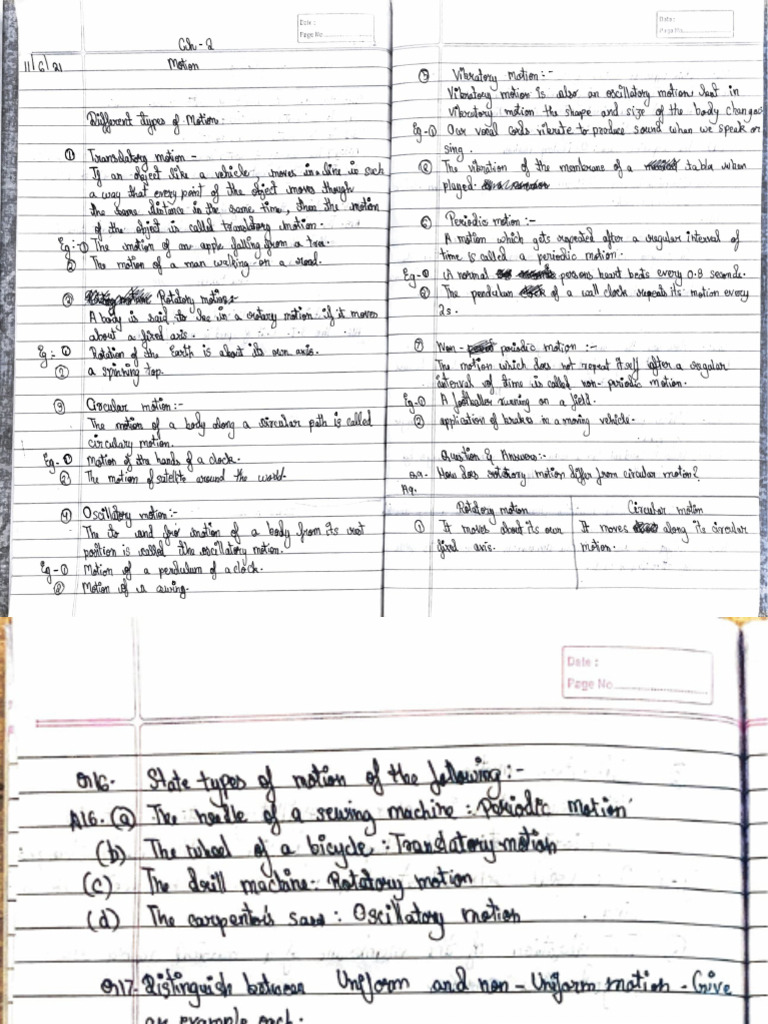 Date :
Page No.
Ch - 2
11/6/21
Motion
Different types of Motion:
① Translatory motion -
If an object like a vehicle, moves in a line in such
a way that every point of the object moves though
the same distance in the same time, then the motion
of the object is called translatory motion.
Eg:- ① The motion of an apple falling from a tree.
② The motion of a man walking on a road.
② Rotatory motion:-
A body is said to be in a rotary motion if it moves
about a fixed axis.
Eg:- ① Rotation of the Earth is about its own axis.
② a spinning top.
③ Circular motion:-
The motion of a body along a circular path is called
circulary motion.
Eg- ① Motion of the hands of a clock.
② The motion of satelite around the world.
④ Oscillatory motion:-
The to and fro motion of a body from its rest
position is called the oscillatory motion.
Eg-① Motion of a pendulum of a clock.
② Motion of a swing.
Date :
Page No.
⑤ Vibratory Motion:-
Vibratory motion is also an oscillatory motion but in
vibratory motion the shape and size of the body changes
Eg-① Our vocal cords vibrate to produce sound when we speak or
sing.
② The vibration of the membrane of a tabla when
played.
⑥ Periodic motion:-
A motion which gets repeated after a regular interval of
time is called a periodic motion.
Eg-① A normal persons heart beats every 0.8 seconds.
② The pendulum of a wall clock repeats its motion every
2s.
⑦ Non - periodic motion :-
The motion which does not repeat itself after a regular
interval of time is called non- periodic motion.
Eg-① A footballer running on a field.
② application of brakes in a moving vehicle.
Question & Answers:-
Q9. How does rotatory motion differ from circular motion?
A9.
Rotatory motion Circular motion
① It moves about its own It moves along its circular
fixed axis. motion.
Date :
Page No.
Q16. State types of motion of the following:-
A16. (a) The needle of a sewing machine : Periodic Motion
(b) The wheel of a bicycle : Translatory motion
(c) The drill machine: Rotatory motion
(d) The carpenter's saw : Oscillatory motion
Q17. Distinguish between Uniform and non - Uniform motion - Give
an example each.